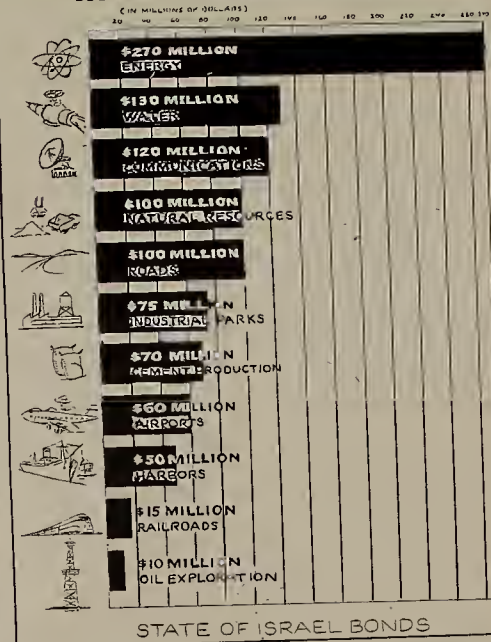 (IN MILLIONS OF DOLLARS)
20 40 60 80 100 120 140 160 180 200 220 240 260 270
$270 MILLION
ENERGY
$130 MILLION
WATER
$120 MILLION
COMMUNICATIONS
$100 MILLION
NATURAL RESOURCES
$100 MILLION
ROADS
$75 MILLION
INDUSTRIAL PARKS
$70 MILLION
CEMENT PRODUCTION
$60 MILLION
AIRPORTS
$50 MILLION
HARBORS
$15 MILLION
RAILROADS
$10 MILLION
OIL EXPLORATION
STATE OF ISRAEL BONDS